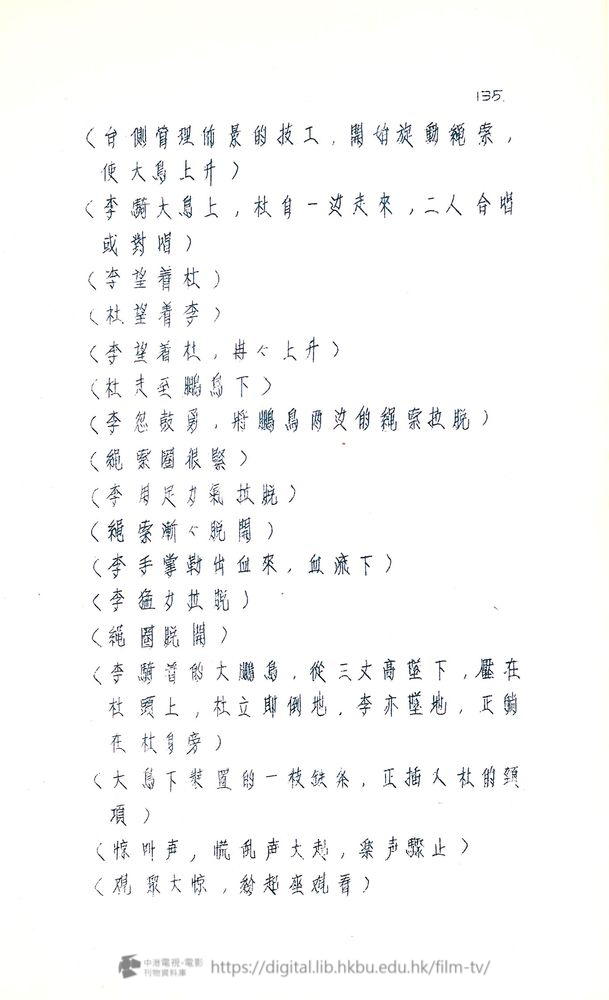 135.
(台側管理佈景的技工，開始旋動繩索，
使大鳥上升)
(李騎大鳥上，杜自一边走來，二人合唱
或對唱)
(李望着杜)
(杜望着李)
(李望着杜，冉々上升)
(杜走至鵬鳥下)
(李忽鼓勇，將鵬鳥两边的繩索拉脱)
(繩索圈很緊)
(李用足力氣拉脱)
(繩索漸々脱開)
(李手掌勒出血來，血流下)
(李猛力拉脱)
(繩圈脱開)
(李騎着的大鵬鳥，從三丈高墜下，壓在
杜頭上，杜立即倒地，李亦墜地，正躺
在杜身旁)
(大鳥下裝置的一枝鉄条，正插入杜的頸
項)
(惊叫声，慌乱声大起，樂声驟止)
(观眾大惊，紛起座观看)
中港電視・電影
刊物資料庫
https://digital.lib.hkbu.edu.hk/film-tv/